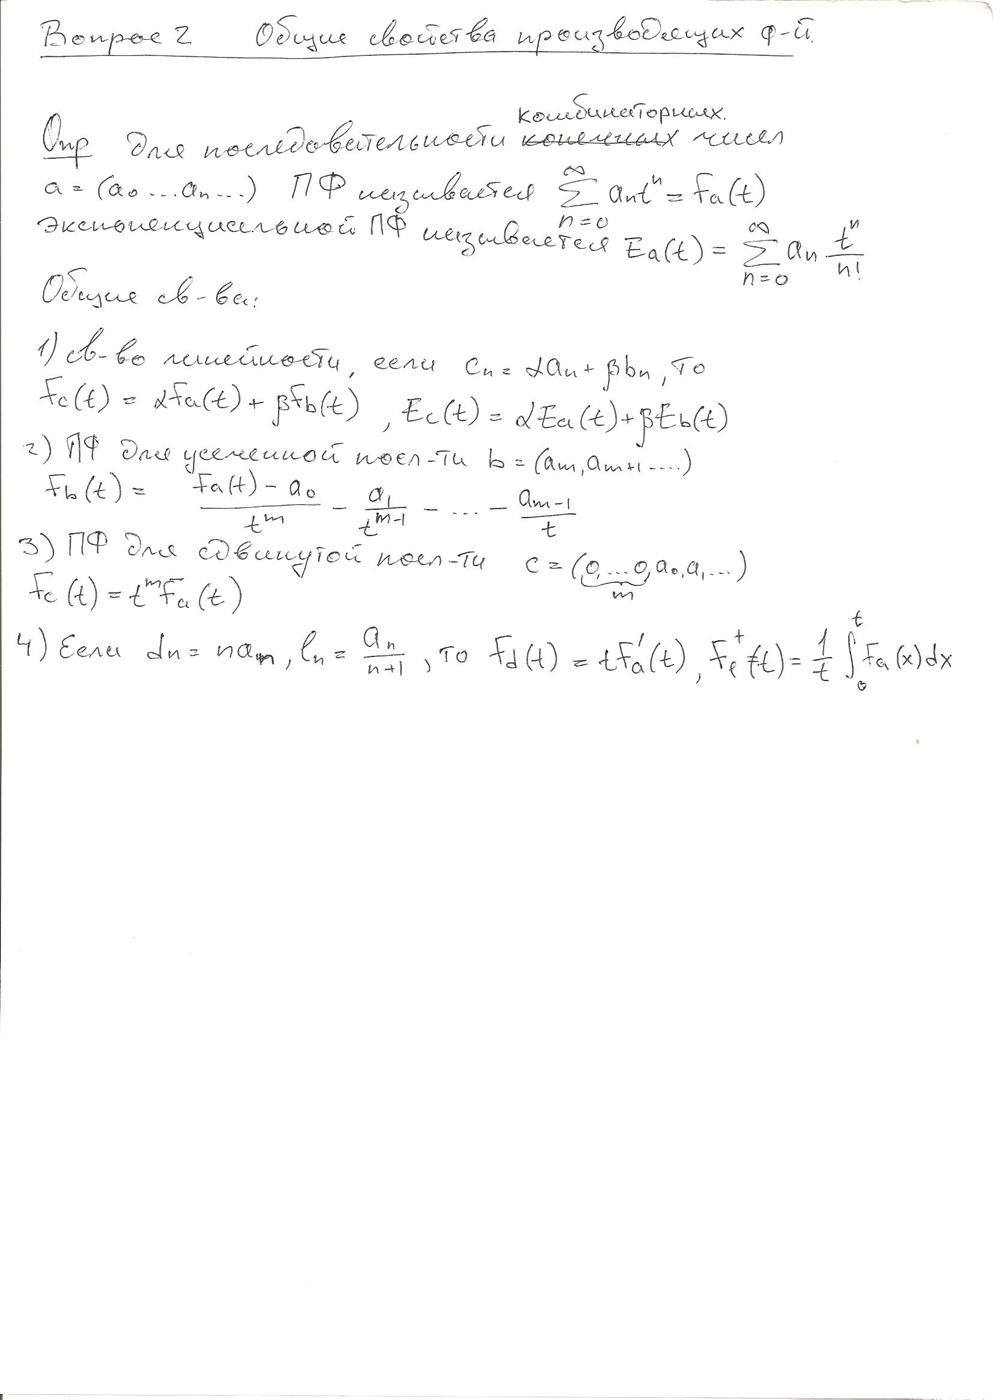 Вопрос 2 Общие свойства производящих ф-й.
Опр для последовательности ~~конечных~~ комбинаторных. чисел
a = (a₀ ... aₙ ...) ПФ называется \sum_{n=0}^{∞} aₙtⁿ = Fₐ(t)
экспоненциальной ПФ называется Eₐ(t) = \sum_{n=0}^{∞} aₙ \frac{tⁿ}{n!}
Общие св-ва:
1) св-во линейности, если cₙ = αaₙ + βbₙ, то
F_c(t) = αFₐ(t) + βF_b(t) , E_c(t) = αEₐ(t) + βE_b(t)
2) ПФ для усеченной посл-ти b = (a_m, a_{m+1} ....)
F_b(t) = \frac{Fₐ(t) - a₀}{t^m} - \frac{a₁}{t^{m-1}} - ... - \frac{a_{m-1}}{t}
3) ПФ для сдвинутой посл-ти c = (\underbrace{0, ... 0}_{m}, a₀, a₁ ...)
F_c(t) = t^m Fₐ(t)
4) Если dₙ = naₙ, lₙ = \frac{aₙ}{n+1}, то F_d(t) = tFₐ'(t), F_l(t) = \frac{1}{t} \int_0^t Fₐ(x)dx